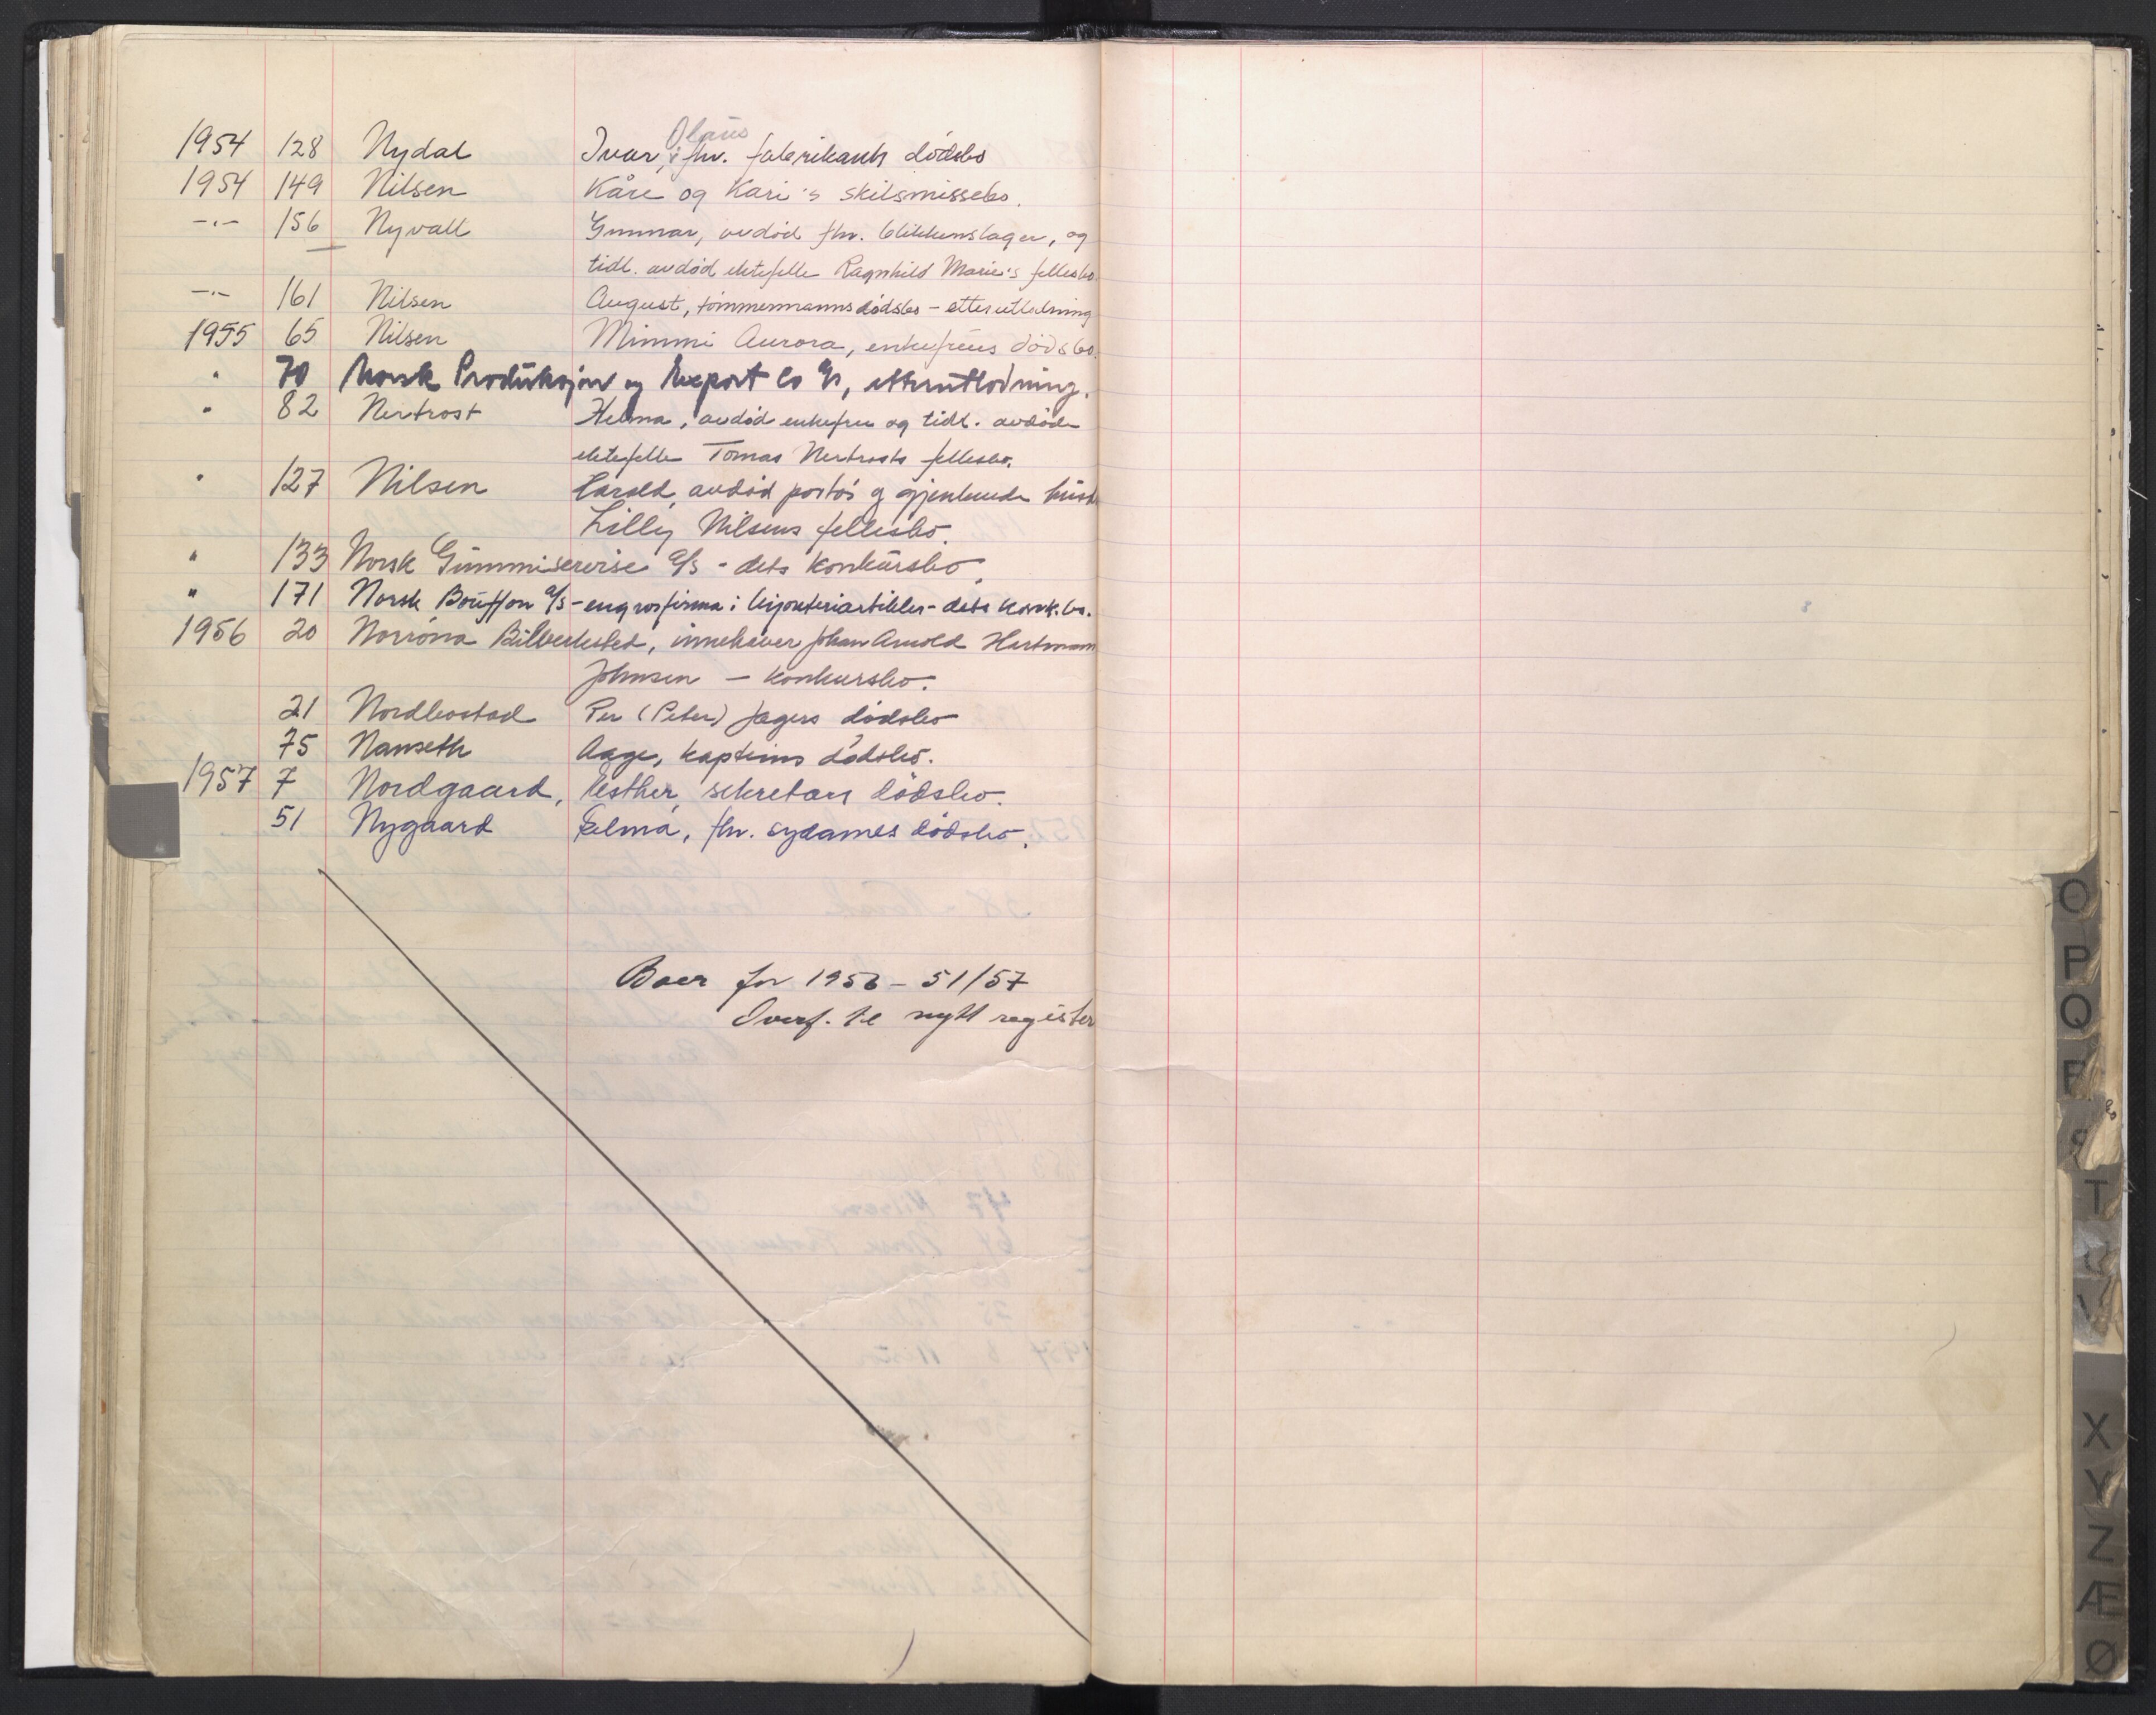 Olaus
1954 128 Nydal Ivar, fhv. fabrikants dødsbo
1954 149 Nilsen Kåre og Kari's skilsmissebo.
-.- 156 Nyvall Gunnar, avdød fhv. blikkenslager, og
tidl. avdød ektefelle Ragnhild Marie's fellesbo.
-.- 161 Nilsen August, tømmermanns dødsbo - etterutlodning
1955 65 Nilsen Mimmi Aurora, enkefrues dødsbo.
" 70 Norsk Produksjon og Export Co A/S, etterutlodning.
" 82 Nertrost Helma, avdød enkefru og tidl. avdøde
ektefelle Tomas Nertrosts fellesbo.
" 127 Nilsen Harald, avdød og gjenlevende
Lilly Nilsens fellesbo.
" 133 Norsk Gummiservise A/S - dets konkursbo.
" 171 Norsk Bouffon A/S - engrosfirma i bijouteriartikler - dets konk.bo.
1956 20 Norrøna Bilverksted, innehaver Johan Arnold Hartmann
Johnsen - konkursbo.
21 Nordbostad Per (Peter) Jagers dødsbo
75 Nanseth Aage, kapteins dødsbo.
1957 7 Nordgaard, Esther, sekretærs dødsbo.
51 Nygaard Selma, fhv. sydames dødsbo.
Boer for 1956 - 51/57
Overf. til nytt register
O
P
Q
R
S
T
U
V
X
Y
Z
Æ
Ø